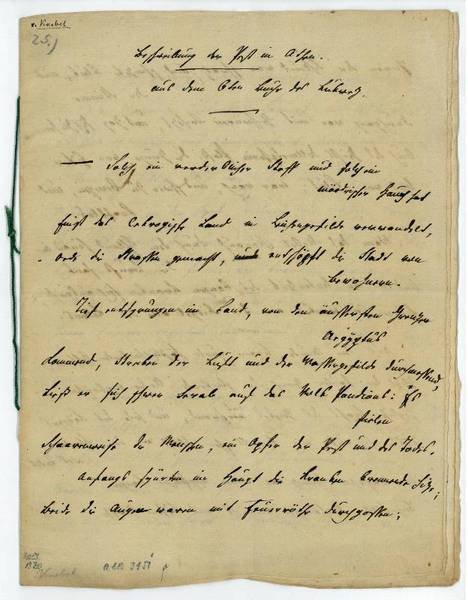 v. Knebel
25.)
Beschreibung der Pest in Athen.
aus dem 6ten Buche des Lukrez.
— Solch ein verderblicher Stoff und solch ein
mördrischer Hauch hat
einst das Cekropische Land in Leichengefilde verwandelt,
öde die Straßen gemacht, und entschöpft die Stadt von
Bewohnern.
Tief entsprungen im Land, von den äussersten Grenzen
Aegyptus
kommend, Strecken der Luft und der Wassergefilde durchmessend,
ließ er sich schwer herab auf das Volk Pandions: Es
fielen
schaarenweise die Menschen, ein Opfer der Pest und des Todes.
Anfangs spürten im Haupt die Kranken brennende Hitze;
beide die Augen waren mit Feuerröthe durchgossen;